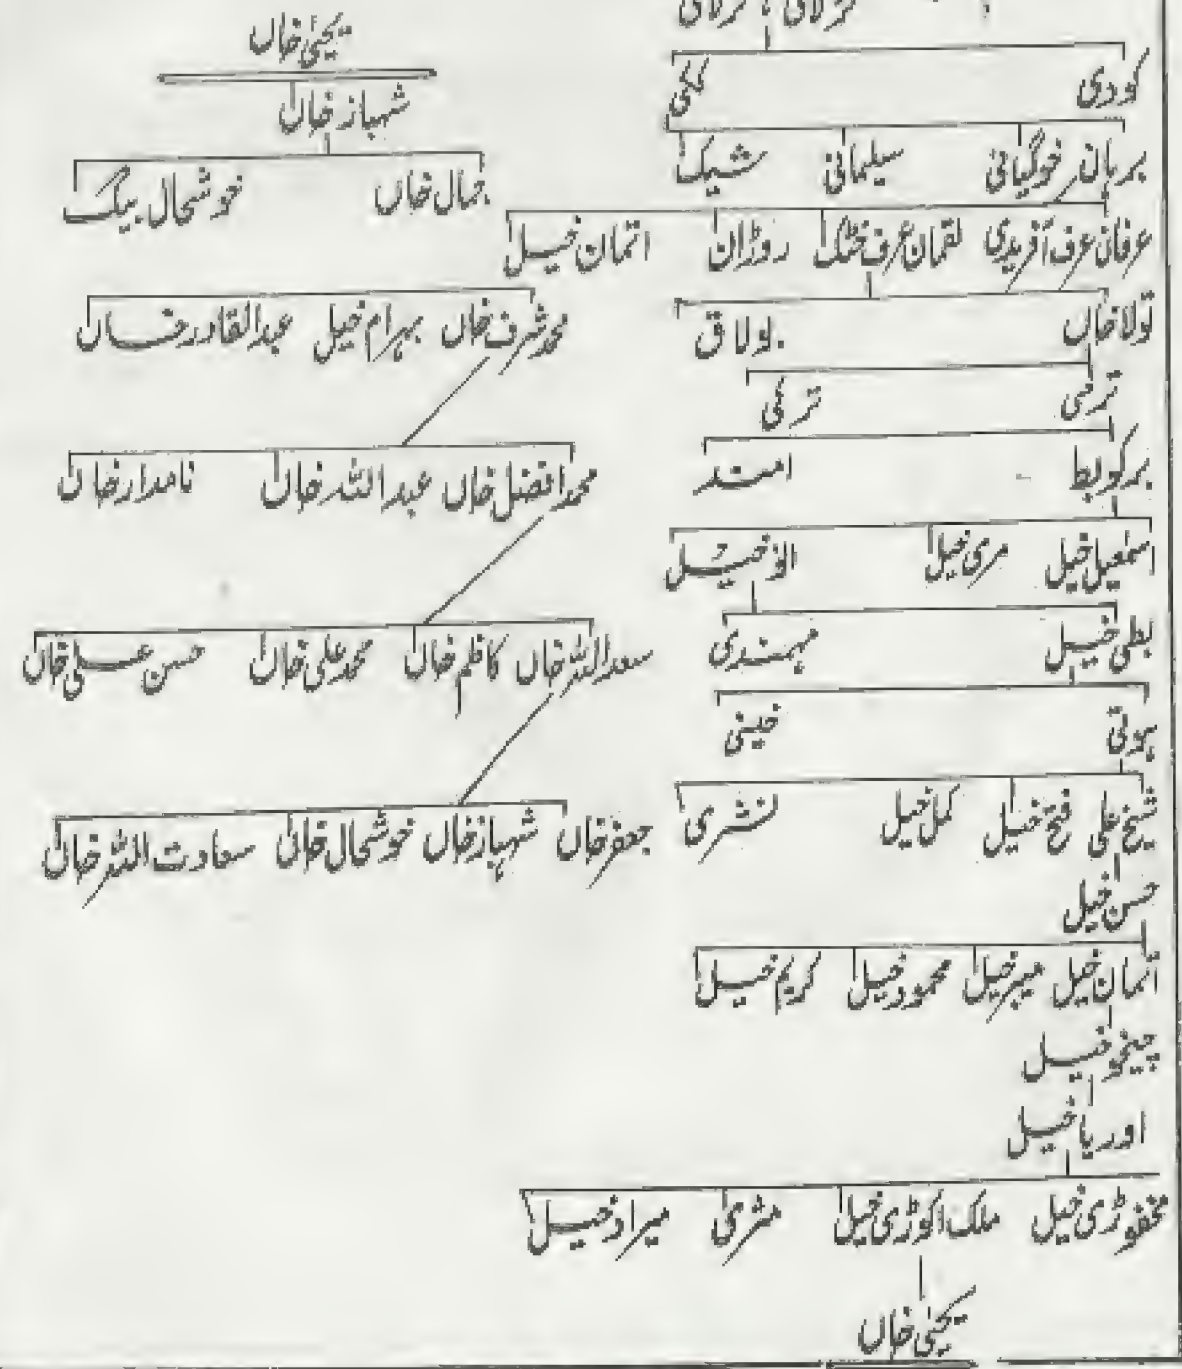 کودی ککی
برہان خوگیانی سلیمانی شیک
عرفان عرف آفریدی لقمان عرف خٹک روڑان اتمان خیل
تولا خاں بولاق
ترئی ترکی
برکوبط امتد
اسمٰعیل خیل مری خیل الوخیل
بطی خیل مہندی
ہوتی خینی
شیخ علی فتح خیل کمل خیل نشری
حسن خیل
اتمان خیل میر خیل محمود خیل کریم خیل
چینجو خیل
اوریا خیل
ملک اکوڑی خیل مثری میراد خیل
یحییٰ خاں
یحییٰ خاں
شہباز خاں
جمال خاں خوشحال بیگ
محمد شرف خاں بہرام خیل عبدالقادر خاں
محمد افضل خاں عبداللہ خاں نامدار خاں
سعداللہ خاں کاظم خاں محمد علی خاں حسن علی خاں
جعفر خاں شہباز خاں خوشحال خاں سعادت اللہ خاں